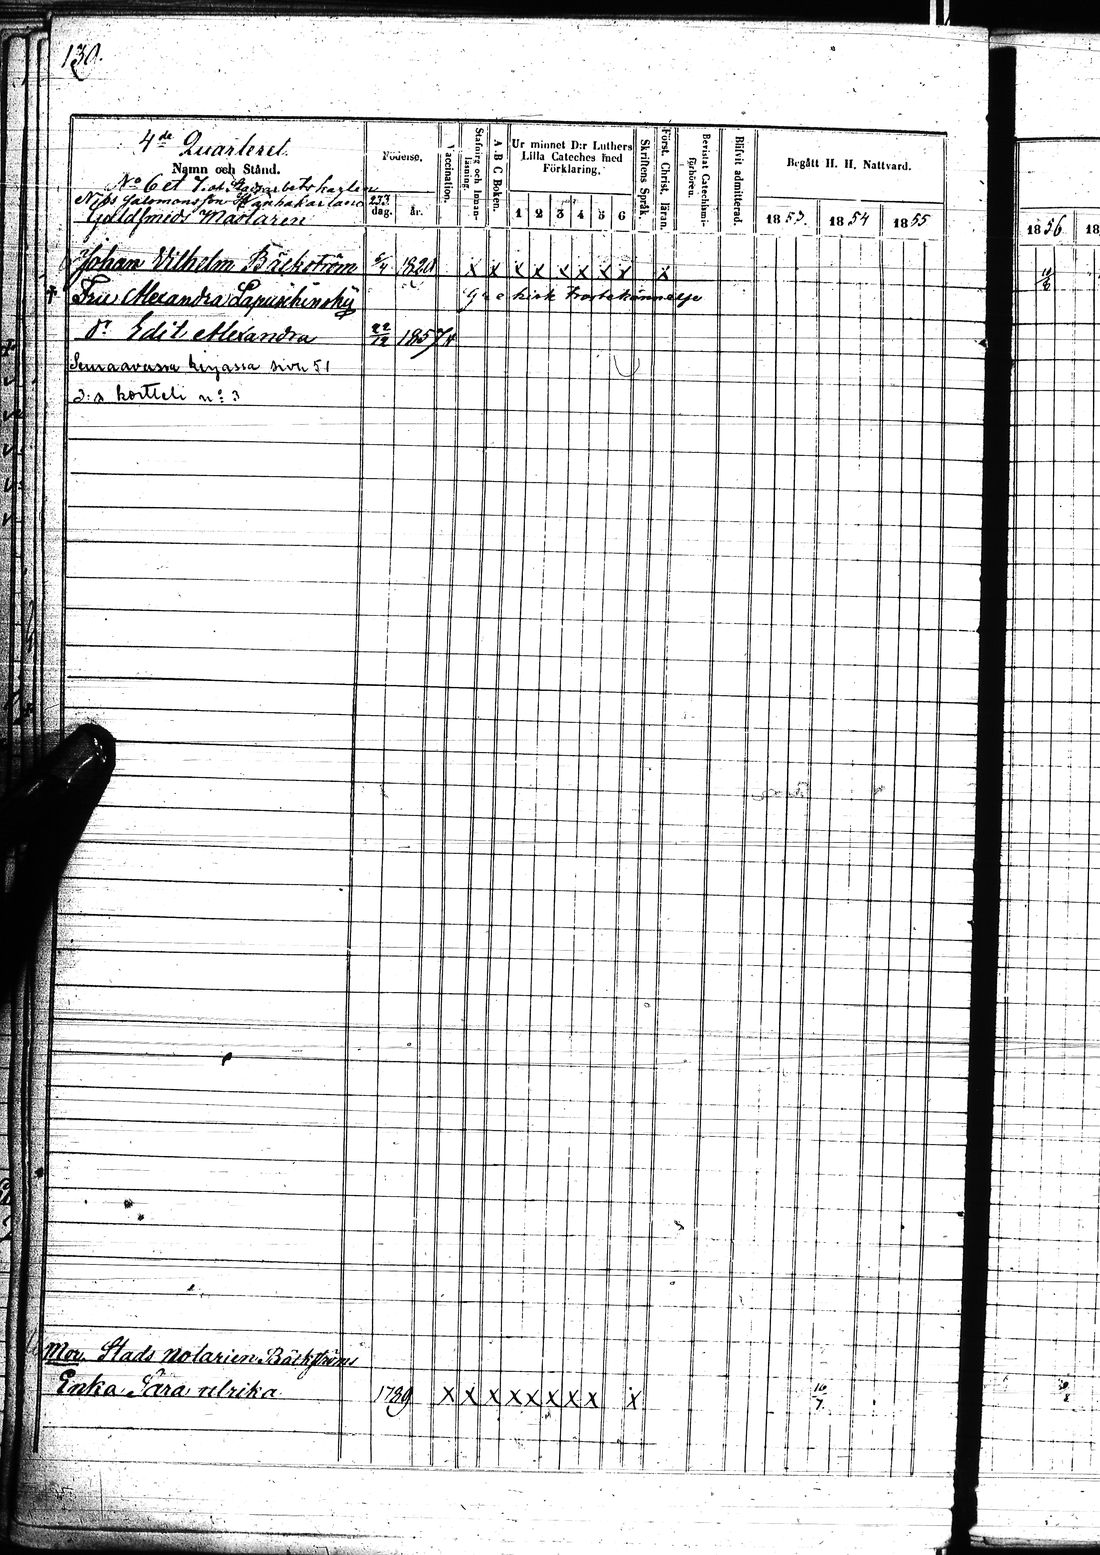 130.
4de Quarteret.
Namn och Stånd.
No 6 et 7.
Nils Salomonsson
Guldsmeds Mästaren
Födelse.
dag. år.
Vaccination.
Stafning och Innanläsning.
A B C Boken.
Ur minnet D:r Luthers Lilla Cateches med Förklaring.
1 2 3 4 5 6
Skriftens Språk.
Först. Christ. läran.
Bevistat Catechismi-förhören.
Blifvit admitterad.
Begått H. H. Nattvard.
1853. 1854 1855
1856 18
Johan Vilhelm Bäckström 5/4 1820 x x x x x x x x x
Fru Alexandra Lapuschinsky Grekisk trosbekännelse
dr Edit Alexandra 22/12 1857 v
Seuraavassa kirjassa sivu 51
2:n kortteli n:o 3
Mor. Stads Notarien Bäckströms
Enka Sara Ulrika 1789 x x x x x x x x x 10/7